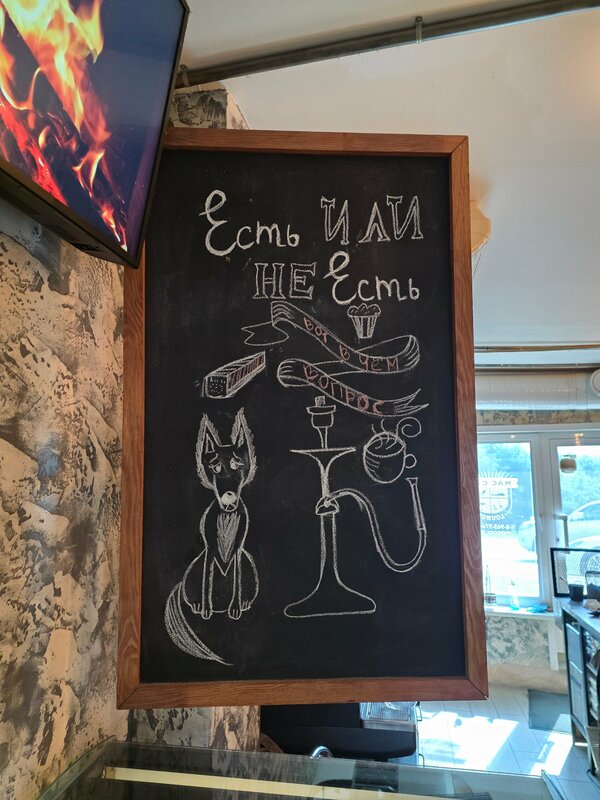 Есть ИЛИ
НЕ Есть
ВОТ В ЧЕМ
ВОПРОС